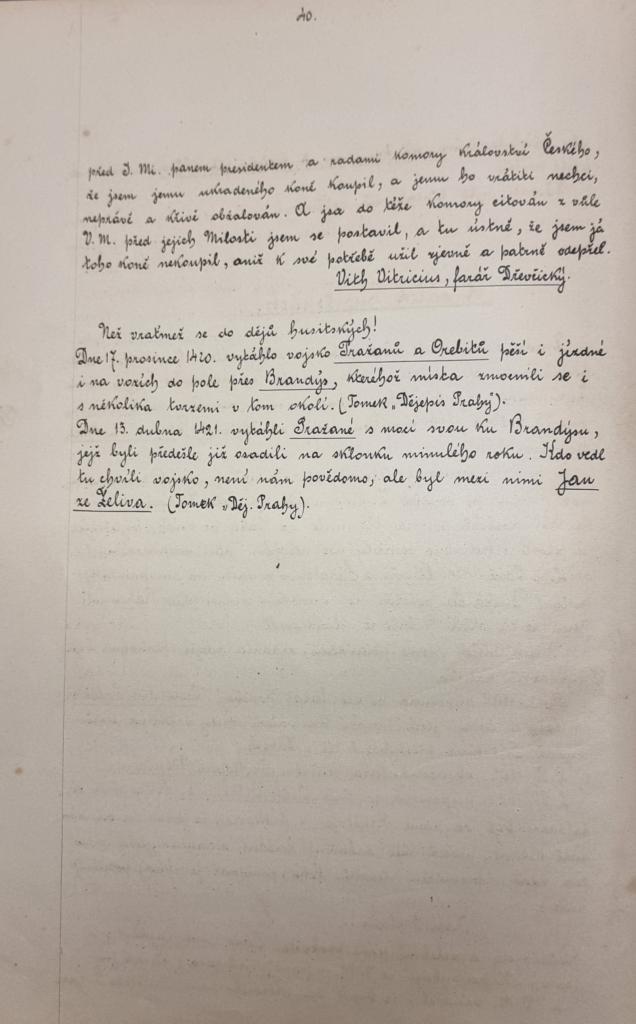 40.
před J. Mi. panem presidentem a radami komory Království Českého,
že jsem jemu ukradeného koně koupil, a jemu ho vrátiti nechci,
neprávě a křivě obžalován. A jsa do těže komory citován z vůle
V. M. před jejich Milosti jsem se postavil, a tu ústně, že jsem já
toho koně nekoupil, aniž k své potřebě užil zjevně a patrně odepřel.
Vith Vitricius, farář Dřevčický.
Než vraťmež se do dějů husitských!
Dne 17. prosince 1420. vytáhlo vojsko Pražanů a Orebitů pěší i jízdné
i na vozích do pole přes Brandýs, kteréhož místa zmocnili se i
s několika tvrzemi v tom okolí. (Tomek „Dějepis Prahy").
Dne 13. dubna 1421. vytáhli Pražané s mocí svou ku Brandýsu,
jejž byli předešle již osadili na sklonku minulého roku. Kdo vedl
tu chvíli vojsko, není nám povědomo, ale byl mezi nimi Jan
ze Želiva. (Tomek „Děj. Prahy).